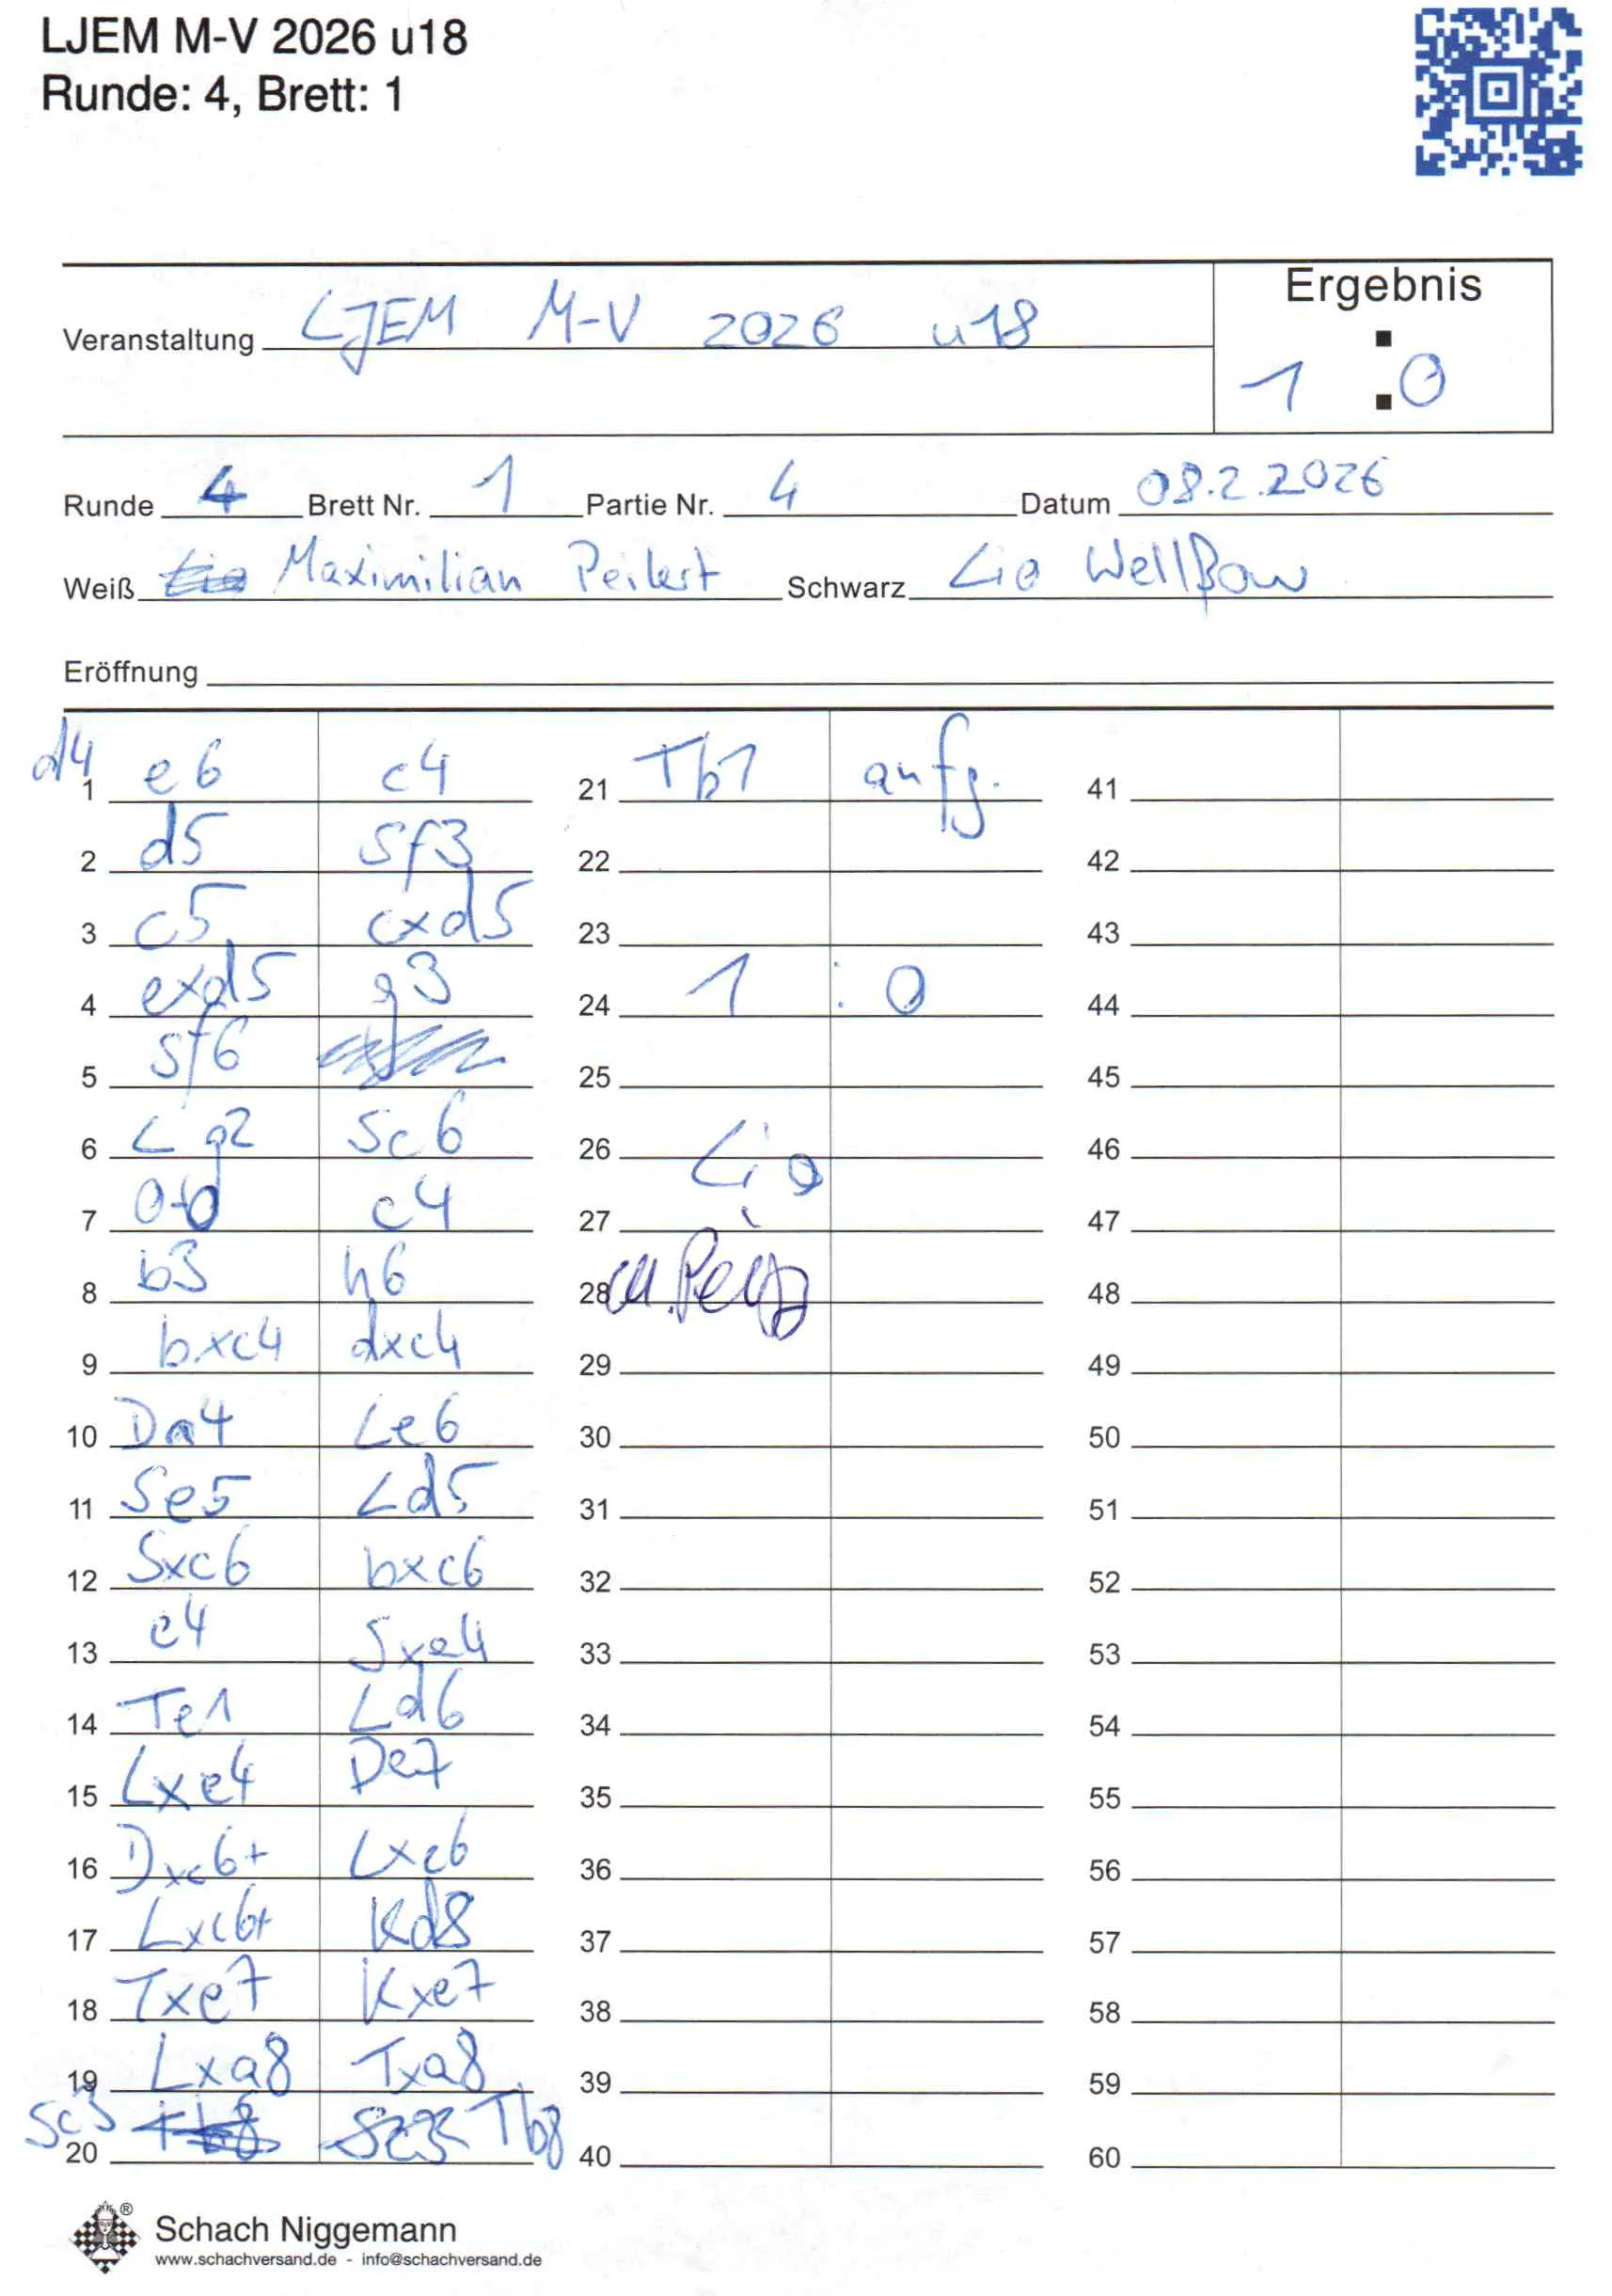 LJEM M-V 2026 u18
Runde: 4, Brett: 1
Ergebnis
Veranstaltung LJEM M-V 2026 u18
1 : 0
Runde 4 Brett Nr. 1 Partie Nr. 4 Datum 08.2.2026
Weiß Maximilian Peilert Schwarz Lio Wellßow
Eröffnung
d4
1 e6 c4
2 d5 Sf3
3 c5 cxd5
4 exd5 g3
5 Sf6
6 Lg2 Sc6
7 0-0 c4
8 b3 h6
9 bxc4 dxc4
10 Da4 Le6
11 Se5 Ld5
12 Sxc6 bxc6
13 e4 Sxe4
14 Te1 Ld6
15 Lxe4 De7
16 Dxc6+ Lxc6
17 Lxc6+ Kd8
18 Txe7 Kxe7
19 Lxa8 Txa8
20 Sc3 Tb8
21 Tb1 aufg.
22
23
24 1 : 0
25
26 Lio
27
28 M.
29
30
31
32
33
34
35
36
37
38
39
40
41
42
43
44
45
46
47
48
49
50
51
52
53
54
55
56
57
58
59
60
®
Schach Niggemann
www.schachversand.de - info@schachversand.de